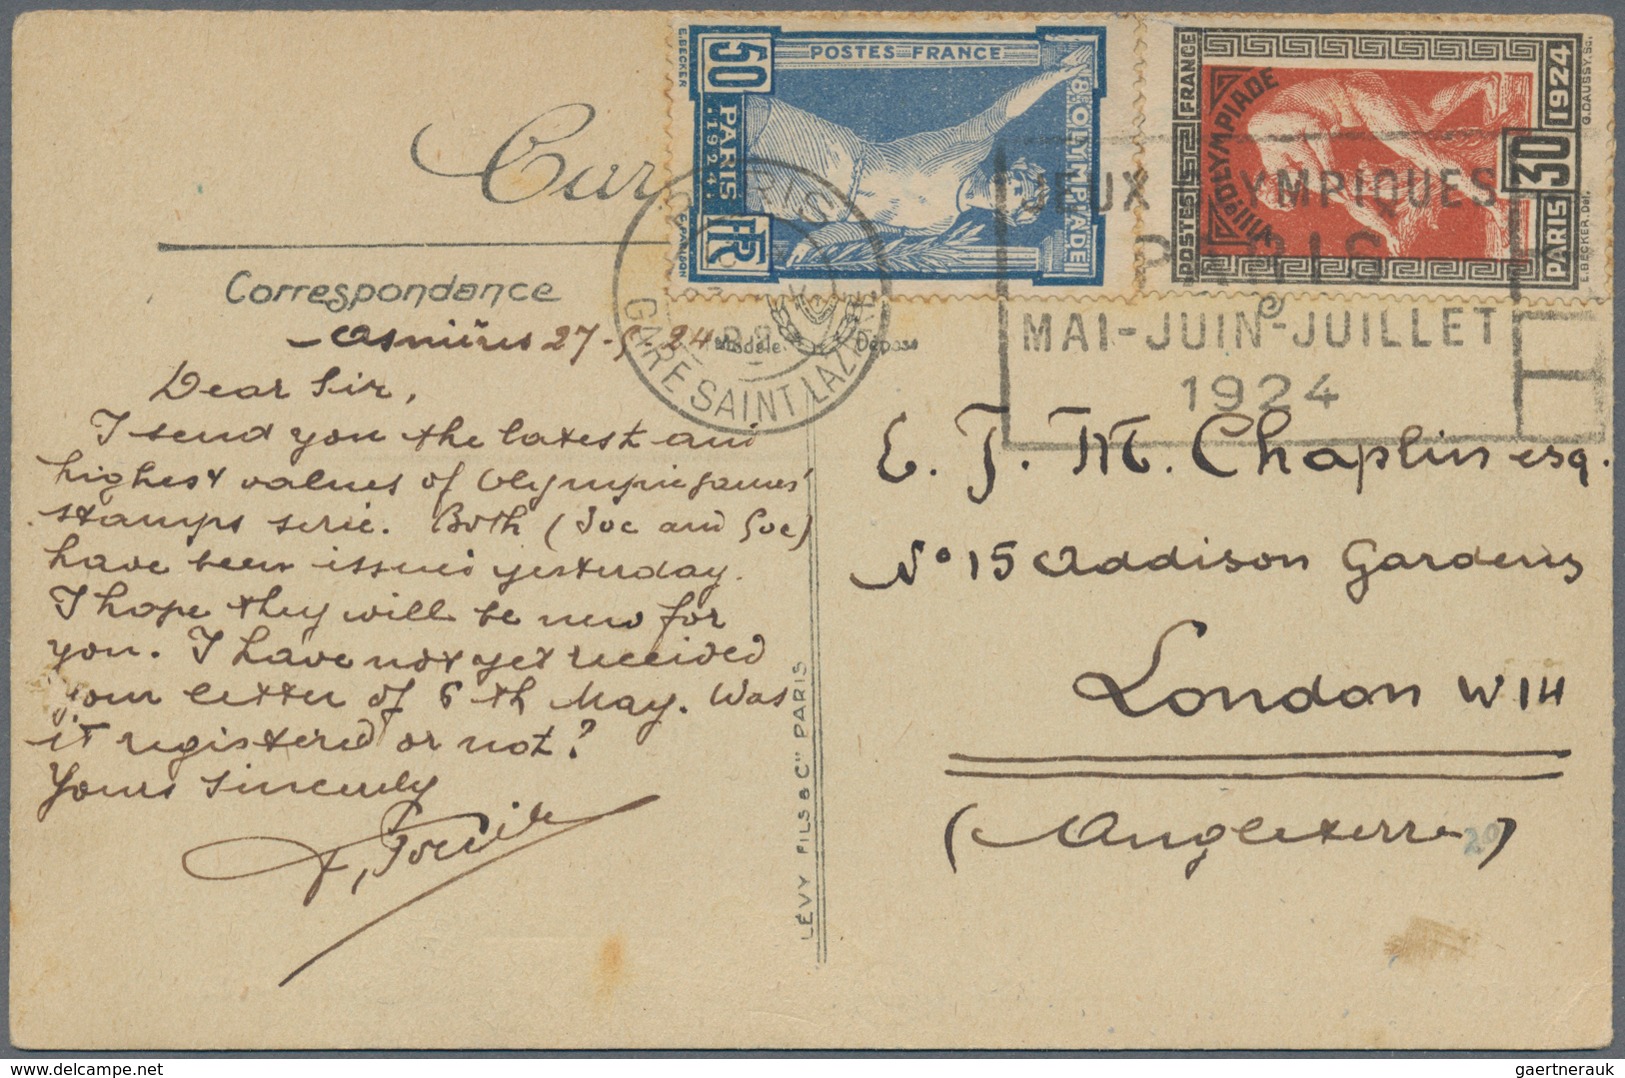 Correspondance
Asnières 27-5-24
Dear Sir,
I send you the latest and
highest values of Olympic games'
stamps serie. Both (30c and 50c)
have been issued yesterday.
I hope they will be new for
you. I have not yet received
your letter of 6th May. Was
it registered or not?
Yours sincerely
Modèle Déposé
LÉVY FILS & Cie PARIS
E. BECKER
50
PARIS
1924
FR
POSTES FRANCE
8e OLYMPIADE
G. DAUSSY. Sc.
POSTES FRANCE
OLYMPIADE
30
PARIS 1924
E. BECKER. Del.
PARIS
GARE SAINT LAZARE
JEUX OLYMPIQUES
PARIS
MAI-JUIN-JUILLET
1924
E. J. M. Chaplin esq.
No 15 Addison Gardens
London W 14
(Angleterre)
20
gaertnerauk